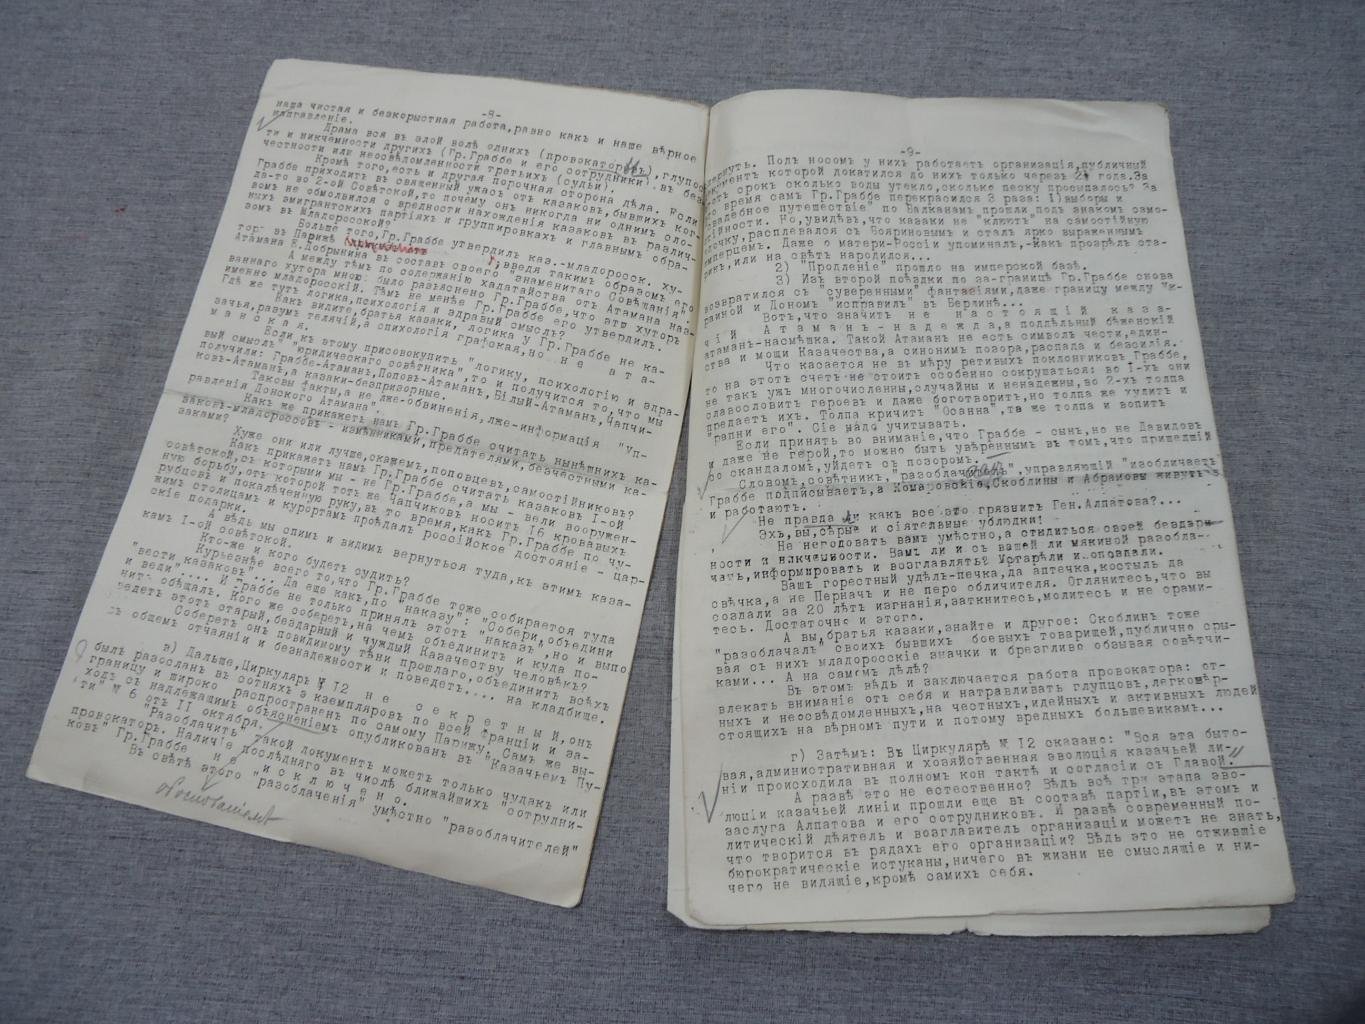 -8-
наша чистая и безкорыстная работа,равно какъ и наше вѣрное
направленіе.
Драма вся въ злой волѣ однихъ (провокаторовъ),глупос
ти и никчемности другихъ (Гр.Граббе и его сотрудники),въ без
честности или неосвѣдомленности третьихъ (судьи).
Кромѣ того,есть и другая порочная сторона дѣла. Если
Граббе приходитъ въ священный ужасъ отъ казаковъ,бывшихъ ког-
да-то во 2-ой Совѣтской,то почему онъ никогда ни однимъ сло-
вомъ не обмолвился о вредности нахожденія казаковъ въ различ-
ныхъ эмигрантскихъ партіяхъ и группировкахъ и главнымъ обра-
зомъ въ Младоросской?
Больше того,Гр.Граббе утвердилъ каз.-младоросск. ху-
торъ въ Парижѣ ,введя такимъ образомъ его
Атамана Е.Добрынина въ составъ своего "знаменитаго Совѣщанія".
А между тѣмъ по содержанію хадатайства отъ Атамана наз-
ваннаго хутора мною было разъяснено Гр.Граббе,что этш хуторъ
именно младоросскій. Тѣмъ не менѣе Гр.Граббе его утвердилъ.
Гдѣ же тутъ логика,психологія и здравый смыслъ?
Какъ видите,братья казаки, логика у Гр.Граббе не ка-
зачья,разумъ телячій,а спихологія графская,но н е а т а-
м а н с к а я.
Если къ этому присовокупить "логику, психологію и здра-
вый смыслъ" "юридическаго совѣтника",то и получится то, что мы
получили: Граббе-Атаманъ,Поповъ-Атаманъ,Бѣлый-Атаманъ,Чапчи-
ковъ-Атаманъ,а казаки-безпризорные.
Таковы факты,а не лже-обвиненія,лже-информація "Уп-
равленія Донского Атамана".
Какъ же прикажетъ намъ Гр.Граббе считать нынѣшнихъ ка-
заковъ-младороссовъ - измѣнниками,предателями,безчестными ка-
заками?
Хуже они или лучше,скажемъ,поповцевъ,самостійниковъ?
Какъ прикажетъ намъ Гр.Граббе считать казаковъ I-ой
совѣтской,съ которыми мы - не Гр.Граббе,а мы - вели вооружен-
ную борьбу,отъ которой тотъ же Чапчиковъ носитъ 16 кровавыхъ
рубцовъ и покалѣченную руку,въ то время,какъ Гр.Граббе по чу-
жимъ столицамъ и курортамъ проѣдалъ россійское достояніе - цар-
скіе подарки.
А вѣдь мы спимъ и видимъ вернуться туда,къ этимъ каза-
камъ I-ой Совѣтской.
Кто-же и кого будетъ судить?
Курьезнѣе всего то,что Гр.Граббе тоже собирается туда
"вести казаковъ"... Да еще какъ,по "наказу": "Собери,объедини
и веди".... И Граббе не только принялъ этотъ "наказъ",но и выпо
нить обѣщалъ. Кого же соберетъ,на чемъ объединитъ и куда по-
ведетъ этотъ старый,бездарный и чуждый Казачеству человѣкъ?
Соберетъ онъ повидимому тѣни прошлаго,объединитъ всѣхъ
съ общемъ отчаяніи и безнадежности и поведетъ.... на кладбище.
в) Дальше,Циркуляръ № I2 н е с е к р е т н ы й,онъ
былъ разосланъ въ сотняхъ экземпляровъ по всей Франціи и за-
границу и широко распространенъ по самому Парижу. Самъ же вы-
ходъ съ надлежащимъ объясненіемъ опубликованъ въ "Казачьемъ Пу-
ти" № 6 отъ II октября.
"Разоблачить" такой документъ можетъ только чудакъ или
провокаторъ. Наличіе послѣдняго въ числѣ ближайшихъ "сотрудни-
ковъ" Гр.Граббе н е и с к л ю ч е н о.
Въ свѣтѣ этого "разоблаченія" умѣстно "разоблачителей"
-9-
Подъ носомъ у нихъ работаетъ организація,публичный
документъ которой докатился до нихъ только черезъ 2½ года.За
этотъ срокъ сколько воды утекло,сколько песку просыпалось? За
это время самъ Гр.Граббе перекрасился 3 раза: I)выборы и
"свадебное путешествіе" по Балканамъ прошли подъ знакомъ само-
стійности. Но,увидѣвъ,что казаки не "клютъ" на самостійную
удочку,расплевался съ Бояриновымъ и сталъ ярко выраженнымъ
имперцемъ. Даже о матери-Россіи упоминалъ,-Какъ прозрѣлъ ста-
рикъ,или на свѣтъ народился...
2) "Продленіе" прошло на имперской базѣ.
3) Изъ второй поѣздки по за-границѣ Гр.Граббе снова
возвратился съ "суверенными" фантазіями,даже границу между "Ук-
раиной и Дономъ "исправилъ" въ Берлинѣ...
Вотъ,что значитъ н е н а с т о я щ і й к а з а-
ч і й А т а м а н - н а д е ж д а,а поддѣльный бѣженскій
атаманъ-насмѣшка. Такой Атаманъ не есть символъ чести,един-
ства и мощи Казачества,а синонимъ позора,распада и безсилія.
Что касается не въ мѣру ретивыхъ поклонниковъ Граббе,
то на этотъ счетъ не стоитъ особенно сокрушаться: во I-хъ они
не такъ ужъ многочисленны,случайны и ненадежны,во 2-хъ толпа
славословитъ героевъ и даже боготворитъ,но толпа же хулитъ и
предаетъ ихъ. Толпа кричитъ "Осанна",та же толпа и вопитъ
"рапни его". Сіе надо учитывать.
Если принять во вниманіе,что Граббе - сынъ,но не Давидовъ
и даже не герой,то можно быть увѣреннымъ въ томъ,что пришедшій
со скандаломъ,уйдетъ съ позоромъ.
Словомъ,совѣтникъ, ,управляющій "изобличаетъ
Граббе подписываетъ,а Комаровскіе,Скоблины и Абрамовы живутъ
и работаютъ.
Не правда ли какъ все это грязнитъ Ген.Алпатова?...
Эхъ,вы,сѣрые и сіятельные ублюдки!
Не негодовать вамъ умѣстно,а стыдиться своей бездарн
ности и никчемности. Вамъ ли и съ вашей ли мякиной разобла-
чать,информировать и возглавлять? Устарѣли и опоздали.
Вашъ горестный удѣлъ-печка,да аптечка,костыль да
свѣчка,а не Перначъ и не перо обличителя. Оглянитесь,что вы
создали за 20 лѣтъ изгнанія,заткнитесь,молитесь и не срами-
тесь. Достаточно и этого.
А вы,братья казаки,знайте и другое: Скоблинъ тоже
"разоблачалъ" своихъ бывшихъ боевыхъ товарищей,публично сры-
вая съ нихъ младоросскіе значки и брезгливо обзывая совѣтчи-
ками... А на самомъ дѣлѣ?
Въ этомъ вѣдь и заключается работа провокатора: от-
влекать вниманіе отъ себя и натравливать глупцовъ,легковѣр-
ныхъ и неосвѣдомленныхъ,на честныхъ,идейныхъ и активныхъ людей
стоящихъ на вѣрномъ пути и потому вредныхъ большевикамъ...
г) Затѣмъ: Въ Циркулярѣ № I2 сказано: "Вся эта быто-
вая,административная и хозяйственная эволюція казачьей ли-
ніи происходила въ полномъ кон тактѣ и согласіи съ Главой."
А развѣ это не естественно? Вѣдь всѣ три этапа эво-
люціи казачьей линіи прошли еще въ составѣ партіи,въ этомъ и
заслуга Алпатова и его сотрудниковъ. И развѣ современный по-
литическій дѣятель и возглавитель организаціи можетъ не знать,
что творится въ рядахъ его организаціи? Вѣдь это не отжившіе
бюрократическіе истуканы,ничего въ жизни не смыслящіе и ни-
чего не видящіе,кромѣ самихъ себя.